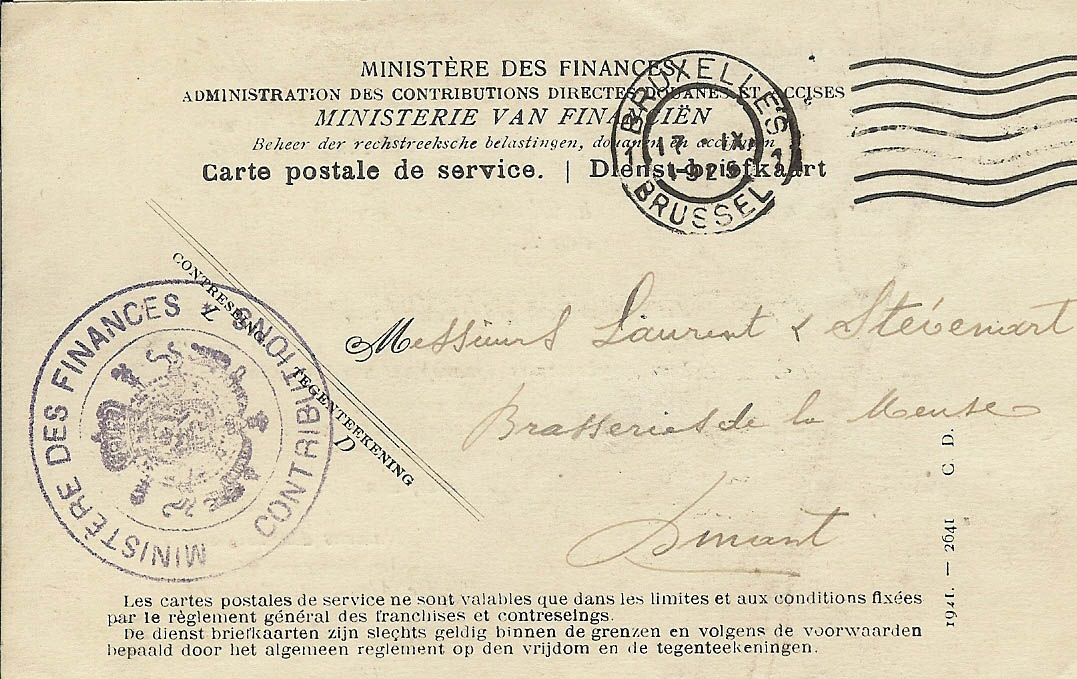 MINISTÈRE DES FINANCES
ADMINISTRATION DES CONTRIBUTIONS DIRECTES DOUANES ET ACCISES
MINISTERIE VAN FINANCIËN
Beheer der rechstreeksche belastingen, douanen en accijnzen
Carte postale de service. | Dienst-briefkaart
BRUXELLES
1 17 - IX 1
1925
BRUSSEL
CONTRESEING
TEGENTEEKENING
D
MINISTÈRE DES FINANCES
CONTRIBUTIONS
Messieurs Laurent & Stévenart
Brasseries de la Meuse
Dinant
1921. — 2641 C. D.
Les cartes postales de service ne sont valables que dans les limites et aux conditions fixées
par le règlement général des franchises et contreseings.
De dienst briefkaarten zijn slechts geldig binnen de grenzen en volgens de voorwaarden
bepaald door het algemeen reglement op den vrijdom en de tegenteekeningen.